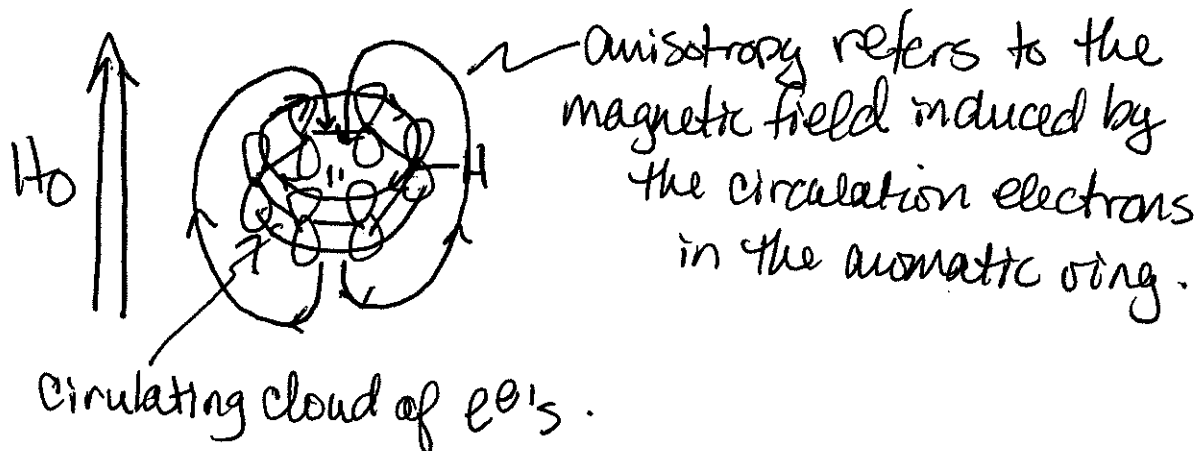 anisotropy refers to the
magnetic field induced by
the circulation electrons
in the aromatic ring.
H₀
H
Cirulating cloud of e⊖'s.